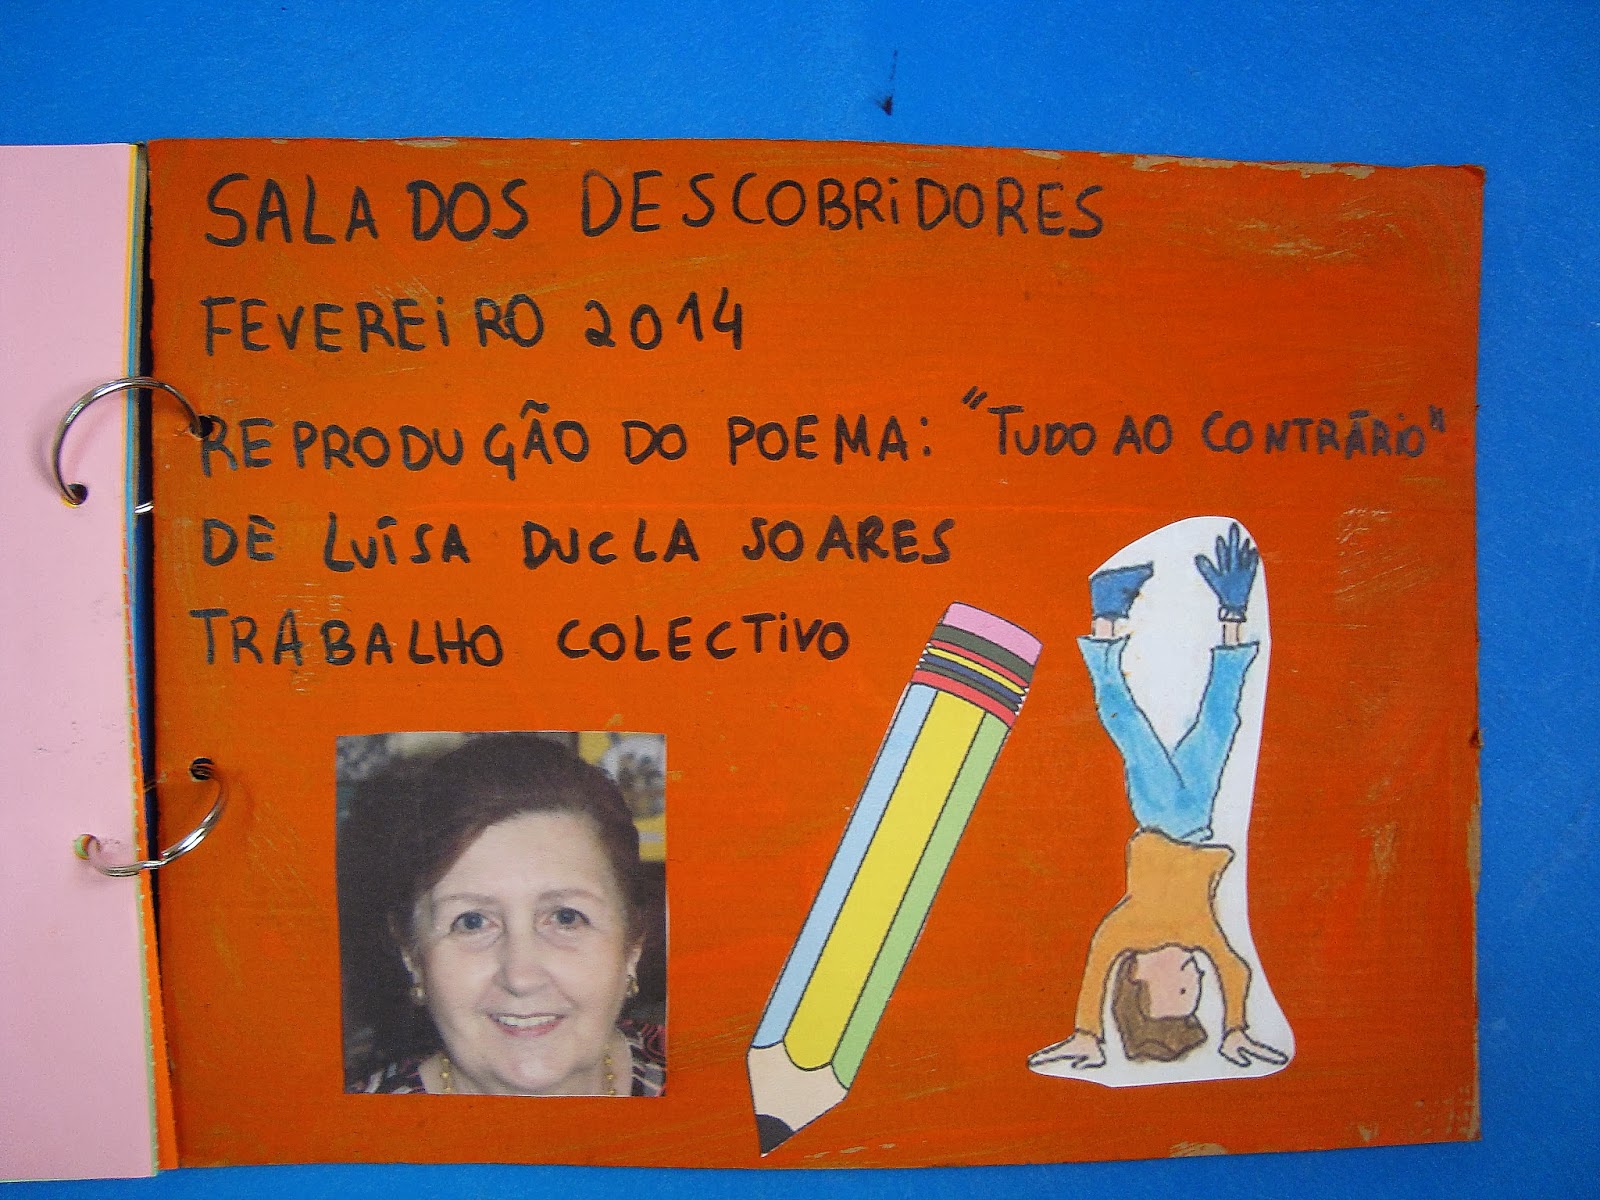 SALA DOS DESCOBRIDORES
FEVEREIRO 2014
REPRODUÇÃO DO POEMA: "TUDO AO CONTRÁRIO"
DE LUÍSA DUCLA SOARES
TRABALHO COLECTIVO